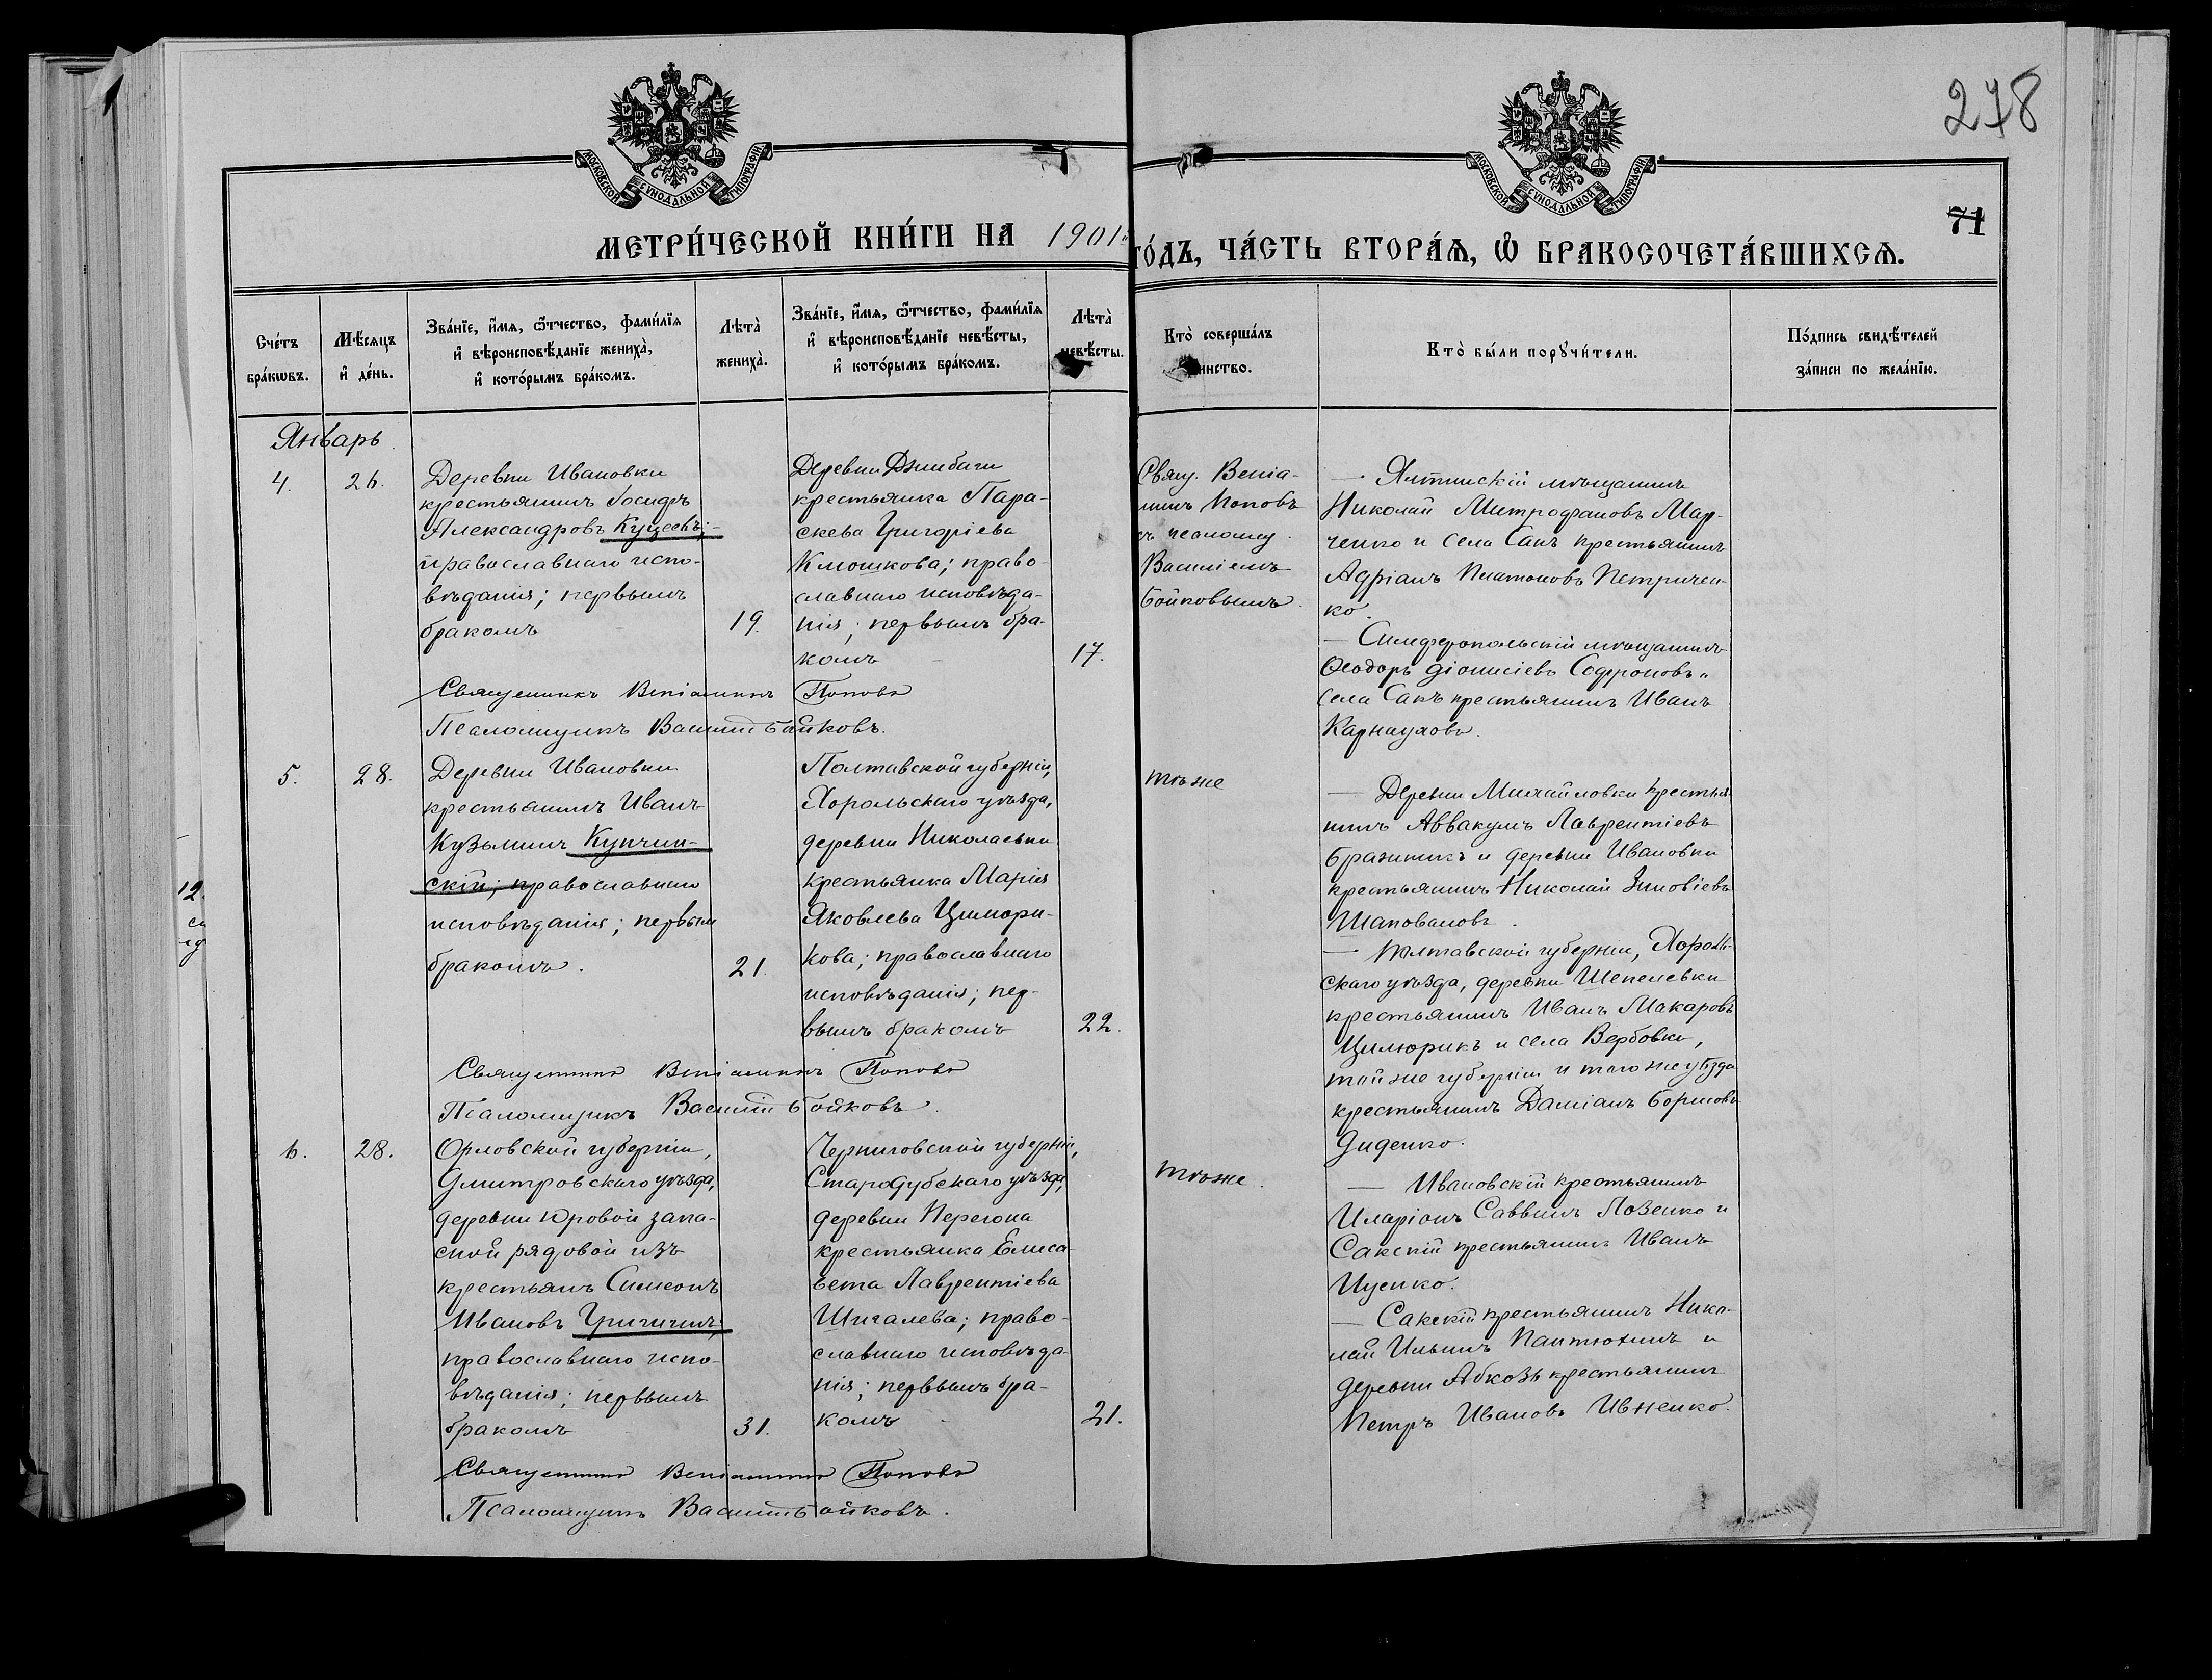 278
71
МОСКОВСКОЙ СУНОДАЛЬНОЙ ТИПОГРАФІИ
МОСКОВСКОЙ СУНОДАЛЬНОЙ ТИПОГРАФІИ
МЕТРИ́ЧЕСКОЙ КНИ́ГИ НА 1901й
ГО́ДЪ, ЧА́СТЬ ВТОРА́Ѧ, Ѡ҆ БРАКОСОЧЕТА́ВШИХСѦ.
Сче́тъ
бра́кѡвъ.
Мѣ́сяцъ
и҆ де́нь.
Зва́нїе, и҆́мя, ѻ҆́тчество, фами́лїя
и҆ вѣроисповѣ́данїе жениха̀,
и҆ кото́рымъ бра́комъ.
Лѣта̀
жениха̀.
Зва́нїе, и҆́мя, ѻ҆́тчество, фами́лїя
и҆ вѣроисповѣ́данїе невѣ́сты,
и҆ кото́рымъ бра́комъ.
Лѣта̀
невѣ́сты.
Кто̀ соверша́лъ
инство.
Кто̀ бы́ли порꙋчи́тели.
По́дпись свидѣ́телей
за́писи по жела́нїю.
Январь
4.
26.
Деревни Ивановки
крестьянинъ Іосифъ
Александровъ Куцеевъ;
православнаго испо-
вѣданія; первымъ
бракомъ
19.
Деревни
крестьянка Пара-
скева Григоріева
Клюшкова; право-
славнаго исповѣда-
нія; первымъ бра-
комъ
17.
Свящ. Веніа-
минъ Поповъ
съ псаломщ.
Василіемъ
Бойковымъ.
— Ялтинскій мѣщанинъ
Николай Митрофановъ Мар-
ченко и села Сакъ крестьянинъ
Адріанъ Платоновъ Петричен-
ко.
— Симферопольскій мѣщанинъ
Ѳеодоръ Діонисіевъ Софроновъ и
села Сакъ крестьянинъ Иванъ
Карнауховъ.
Священникъ Веніаминъ Поповъ
Псаломщикъ Василій Бойковъ.
5.
28.
Деревни Ивановки
крестьянинъ Иванъ
Кузьминъ Купчин-
скій; православнаго
исповѣданія; первымъ
бракомъ.
21.
Полтавской губерніи,
Хорольскаго уѣзда,
деревни Николаевки
крестьянка Марія
Яковлева Цилюри-
кова; православнаго
исповѣданія; пер-
вымъ бракомъ
22.
тѣ же
— Деревни Михайловки крестья-
нинъ Аввакумъ Лаврентіевъ
Бразникъ и деревни Ивановки
крестьянинъ Николай Зиновіевъ
Шаповаловъ.
— Полтавской губерніи, Хороль-
скаго уѣзда, деревни Шепелевки
крестьянинъ Иванъ Макаровъ
Цилюрикъ и села Вербовки,
той же губерніи и того же уѣзда
крестьянинъ Даміанъ
Диденко.
Священникъ Веніаминъ Поповъ
Псаломщикъ Василій Бойковъ.
6.
28.
Орловской губерніи,
Дмитровскаго уѣзда,
деревни Юровой запа-
сной рядовой изъ
крестьянъ Симеонъ
Ивановъ Григичинъ;
православнаго испо-
вѣданія; первымъ
бракомъ
31.
Черниговской губерніи,
Стародубскаго уѣзда,
деревни Перегона
крестьянка Елиса-
вета Лаврентіева
Шигалева; право-
славнаго исповѣда-
нія; первымъ бра-
комъ
21.
тѣ же.
— Ивановскій крестьянинъ
Иларіонъ Саввинъ Лозенко и
Сакскій крестьянинъ Иванъ
Иценко.
— Сакскій крестьянинъ Нико-
лай Ильинъ Пантюхинъ и
деревни Абкозы крестьянинъ
Петръ Ивановъ Ивненко.
Священникъ Веніаминъ Поповъ
Псаломщикъ Василій Бойковъ.
12.